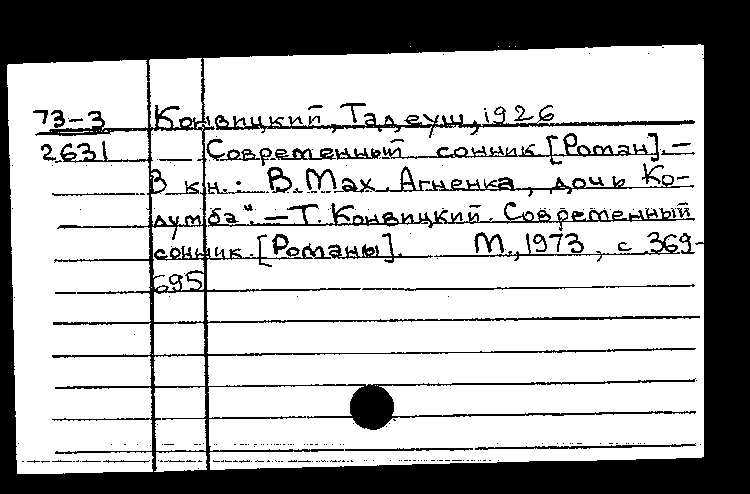 73-3 Конвицкий, Тадеуш, 1926
2631 Современный сонник [Роман].-
В кн.: В. Мах. Агненка, дочь Ко-
лумба". - Т. Конвицкий. Современный
сонник. [Романы]. М., 1973, с 369-
695